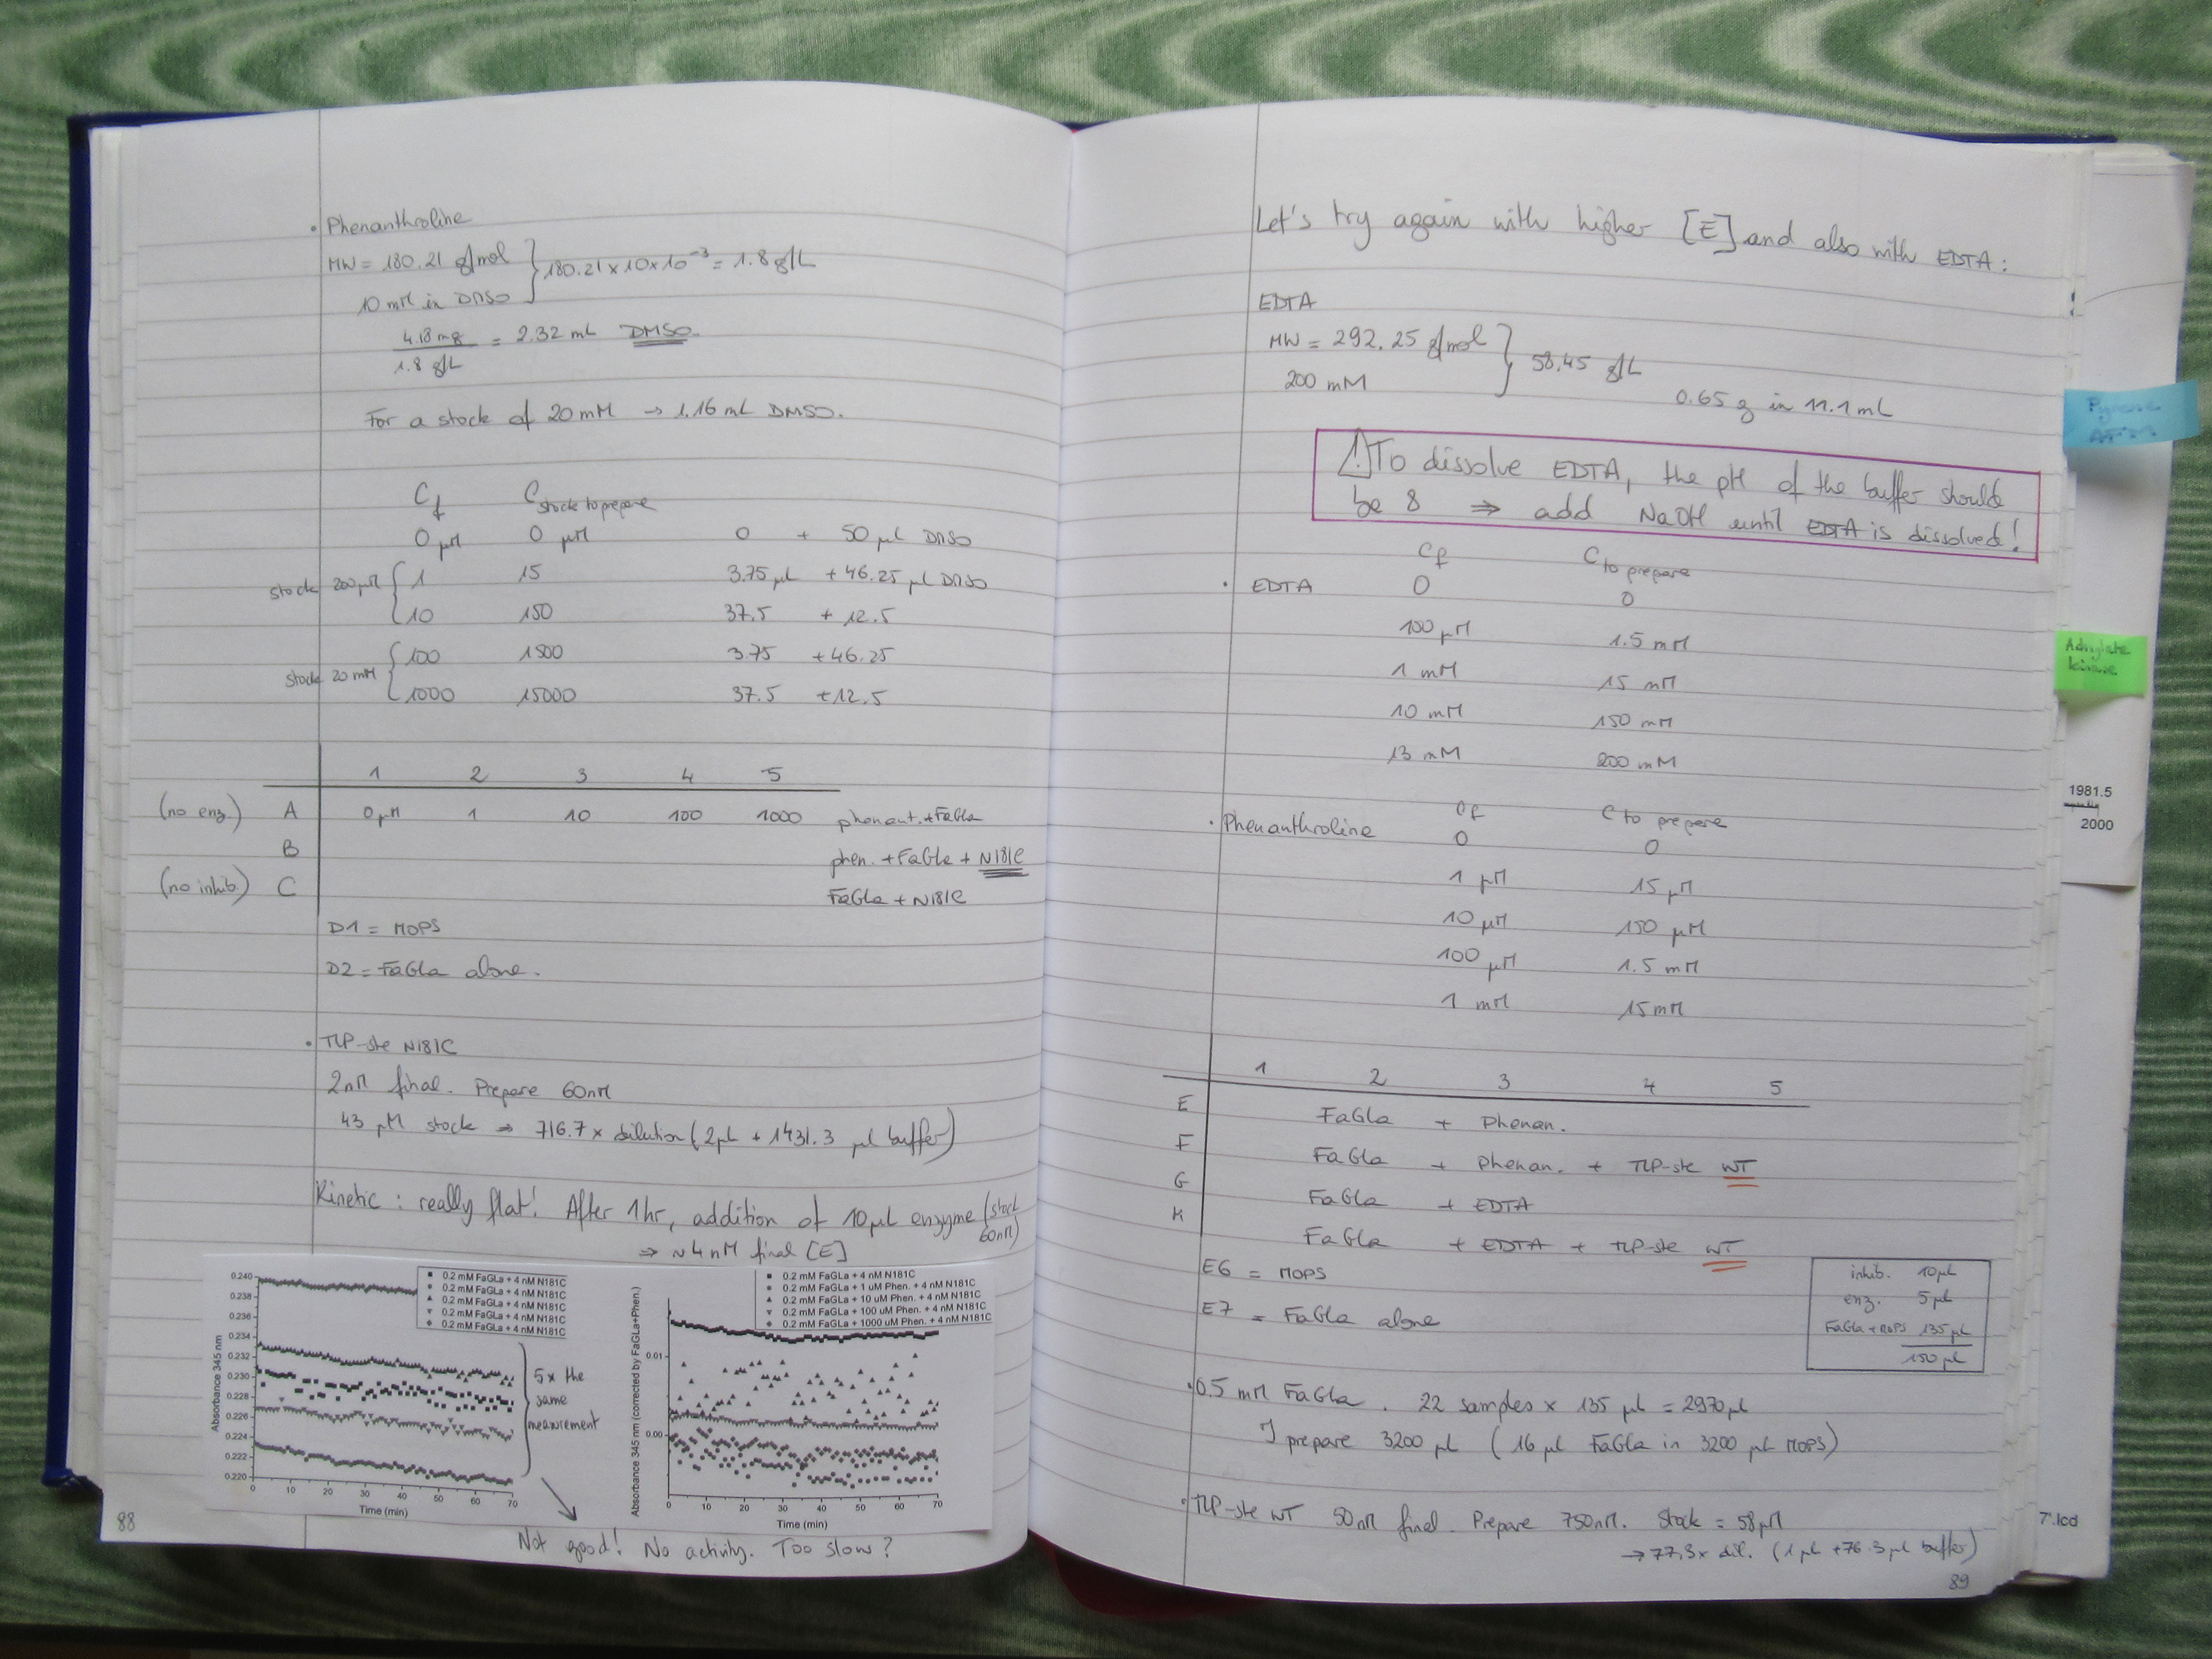 • Phenanthroline
MW = 180.21 g/mol
10 mM in DMSO
180.21 x 10 x 10⁻³ = 1.8 g/L
4.18 mg / 1.8 g/L = 2.32 mL DMSO.
For a stock of 20 mM → 1.16 mL DMSO.
Cf C stock to prepare
0 µM 0 µM 0 + 50 µl DMSO
stock 200 µM { 1 15 3.75 µl + 46.25 µl DMSO
10 150 37.5 + 12.5
stock 20 mM { 100 1500 3.75 + 46.25
1000 15000 37.5 + 12.5
1 2 3 4 5
(no enz.) A 0 µM 1 10 100 1000 phenant. + FaGla
B phen. + FaGla + N181C
(no inhib.) C FaGla + N181C
D1 = MOPS
D2 = FaGla alone.
• TLP-ste N181C
2nM final. Prepare 60nM
43 µM stock ⇒ 716.7 x dilution (2µL + 1431.3 µl buffer)
Kinetic : really flat! After 1hr, addition of 10µl enzyme (stock 60nM)
⇒ ~4nM final [E]
0.2 mM FaGLa + 4 nM N181C
0.2 mM FaGLa + 4 nM N181C
0.2 mM FaGLa + 4 nM N181C
0.2 mM FaGLa + 4 nM N181C
0.2 mM FaGLa + 4 nM N181C
Absorbance 345 nm
0.240
0.238
0.236
0.234
0.232
0.230
0.228
0.226
0.224
0.222
0.220
0 10 20 30 40 50 60 70
Time (min)
5x the
same
measurement
0.2 mM FaGLa + 4 nM N181C
0.2 mM FaGLa + 1 uM Phen. + 4 nM N181C
0.2 mM FaGLa + 10 uM Phen. + 4 nM N181C
0.2 mM FaGLa + 100 uM Phen. + 4 nM N181C
0.2 mM FaGLa + 1000 uM Phen. + 4 nM N181C
Absorbance 345 nm (corrected by FaGLa+Phen.)
0.01
0.00
0 10 20 30 40 50 60 70
Time (min)
Not good! No activity. Too slow?
88
Let's try again with higher [E] and also with EDTA :
EDTA
MW = 292.25 g/mol
200 mM
58.45 g/L
0.65 g in 11.1 mL
⚠ To dissolve EDTA, the pH of the buffer should
be 8 ⇒ add NaOH until EDTA is dissolved!
Cf C to prepare
• EDTA 0 0
100 µM 1.5 mM
1 mM 15 mM
10 mM 150 mM
13 mM 200 mM
Cf C to prepare
• Phenanthroline 0 0
1 µM 15 µM
10 µM 150 µM
100 µM 1.5 mM
1 mM 15 mM
1 2 3 4 5
E FaGla + Phenan.
F FaGla + Phenan. + TLP-ste WT
G FaGla + EDTA
H FaGla + EDTA + TLP-ste WT
E6 = MOPS
E7 = FaGla alone
inhib. 10µL
enz. 5 µl
FaGla + MOPS 135 µl
150 µl
• 0.5 mM FaGla . 22 samples x 135 µl = 2970 µl
I prepare 3200 µl (16 µl FaGla in 3200 µl MOPS)
• TLP-ste WT 50nM final. Prepare 750nM. Stock = 58 µM
→ 77.3x dil. (1 µl + 76.3 µl buffer)
89
Adenylate
kinase
1981.5
2000
7'.lcd